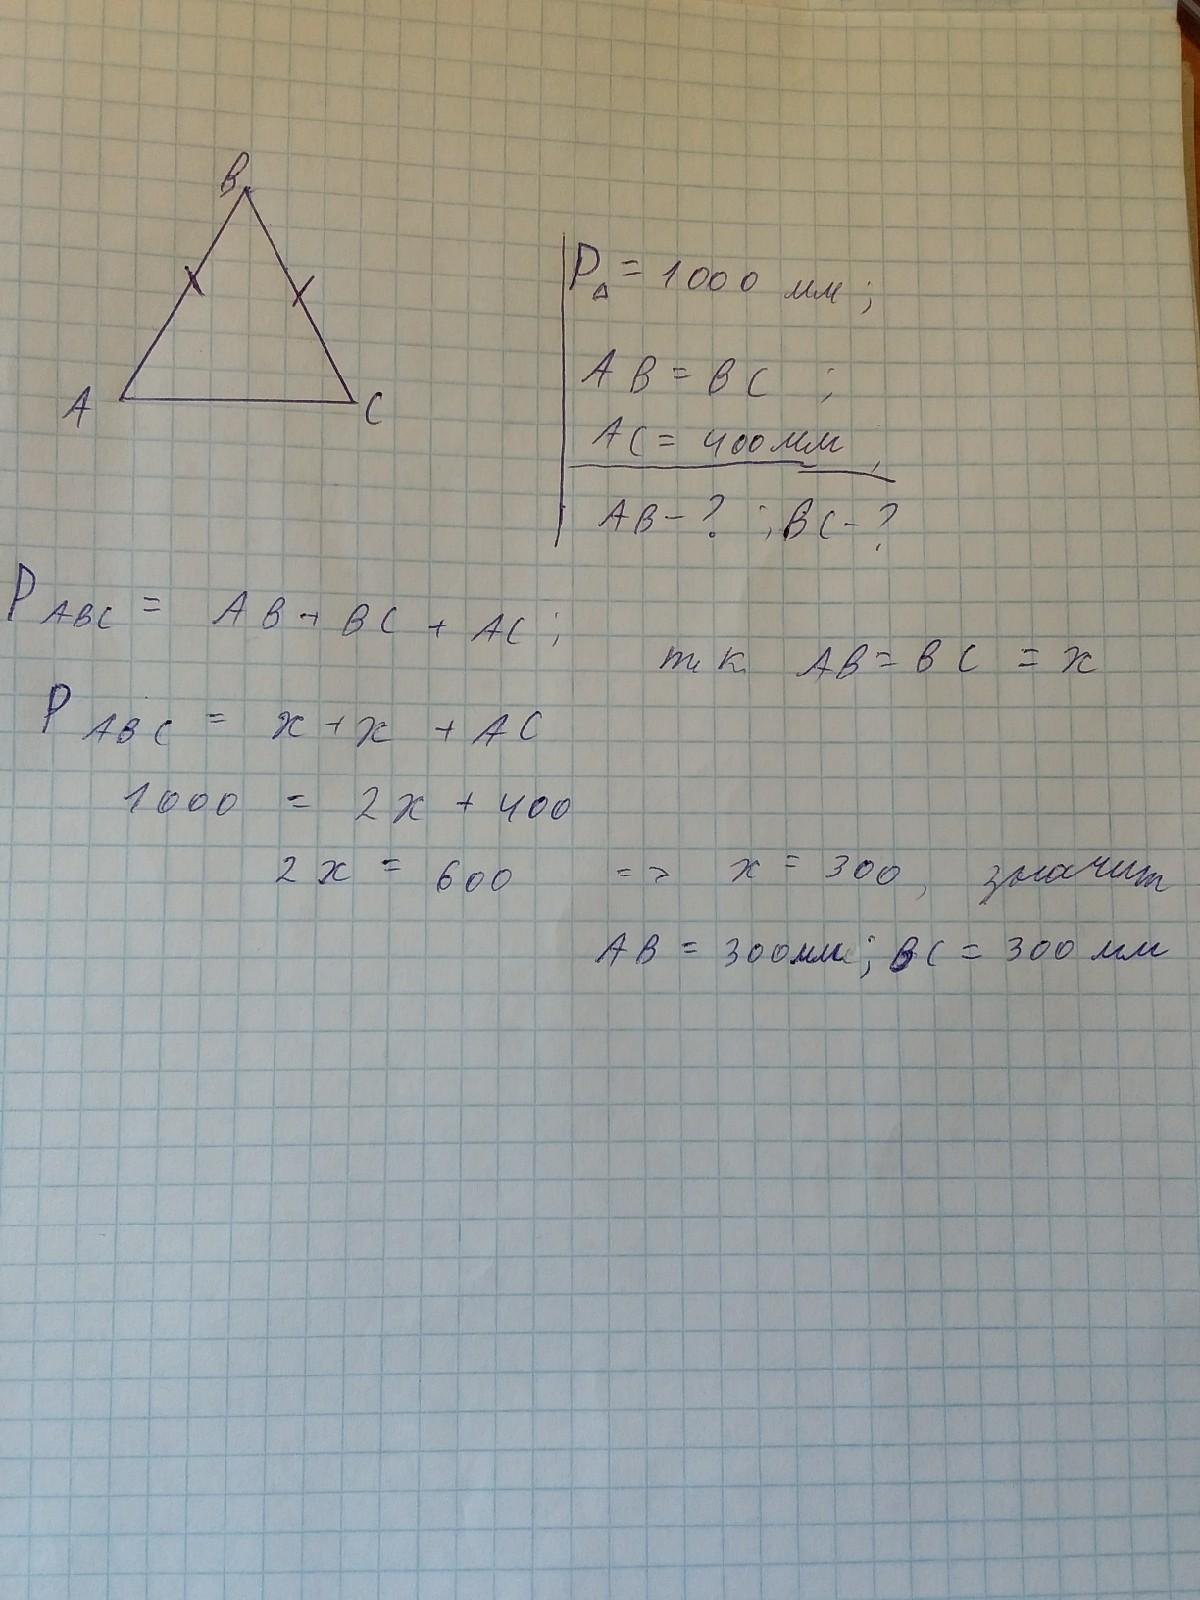 B
A
C
P△ = 1000 мм;
AB = BC ;
AC = 400 мм,
AB - ? ; BC - ?
P ABC = AB + BC + AC;
т.к. AB = BC = x
P ABC = x + x + AC
1000 = 2x + 400
2x = 600 => x = 300, значит
AB = 300мм; BC = 300 мм